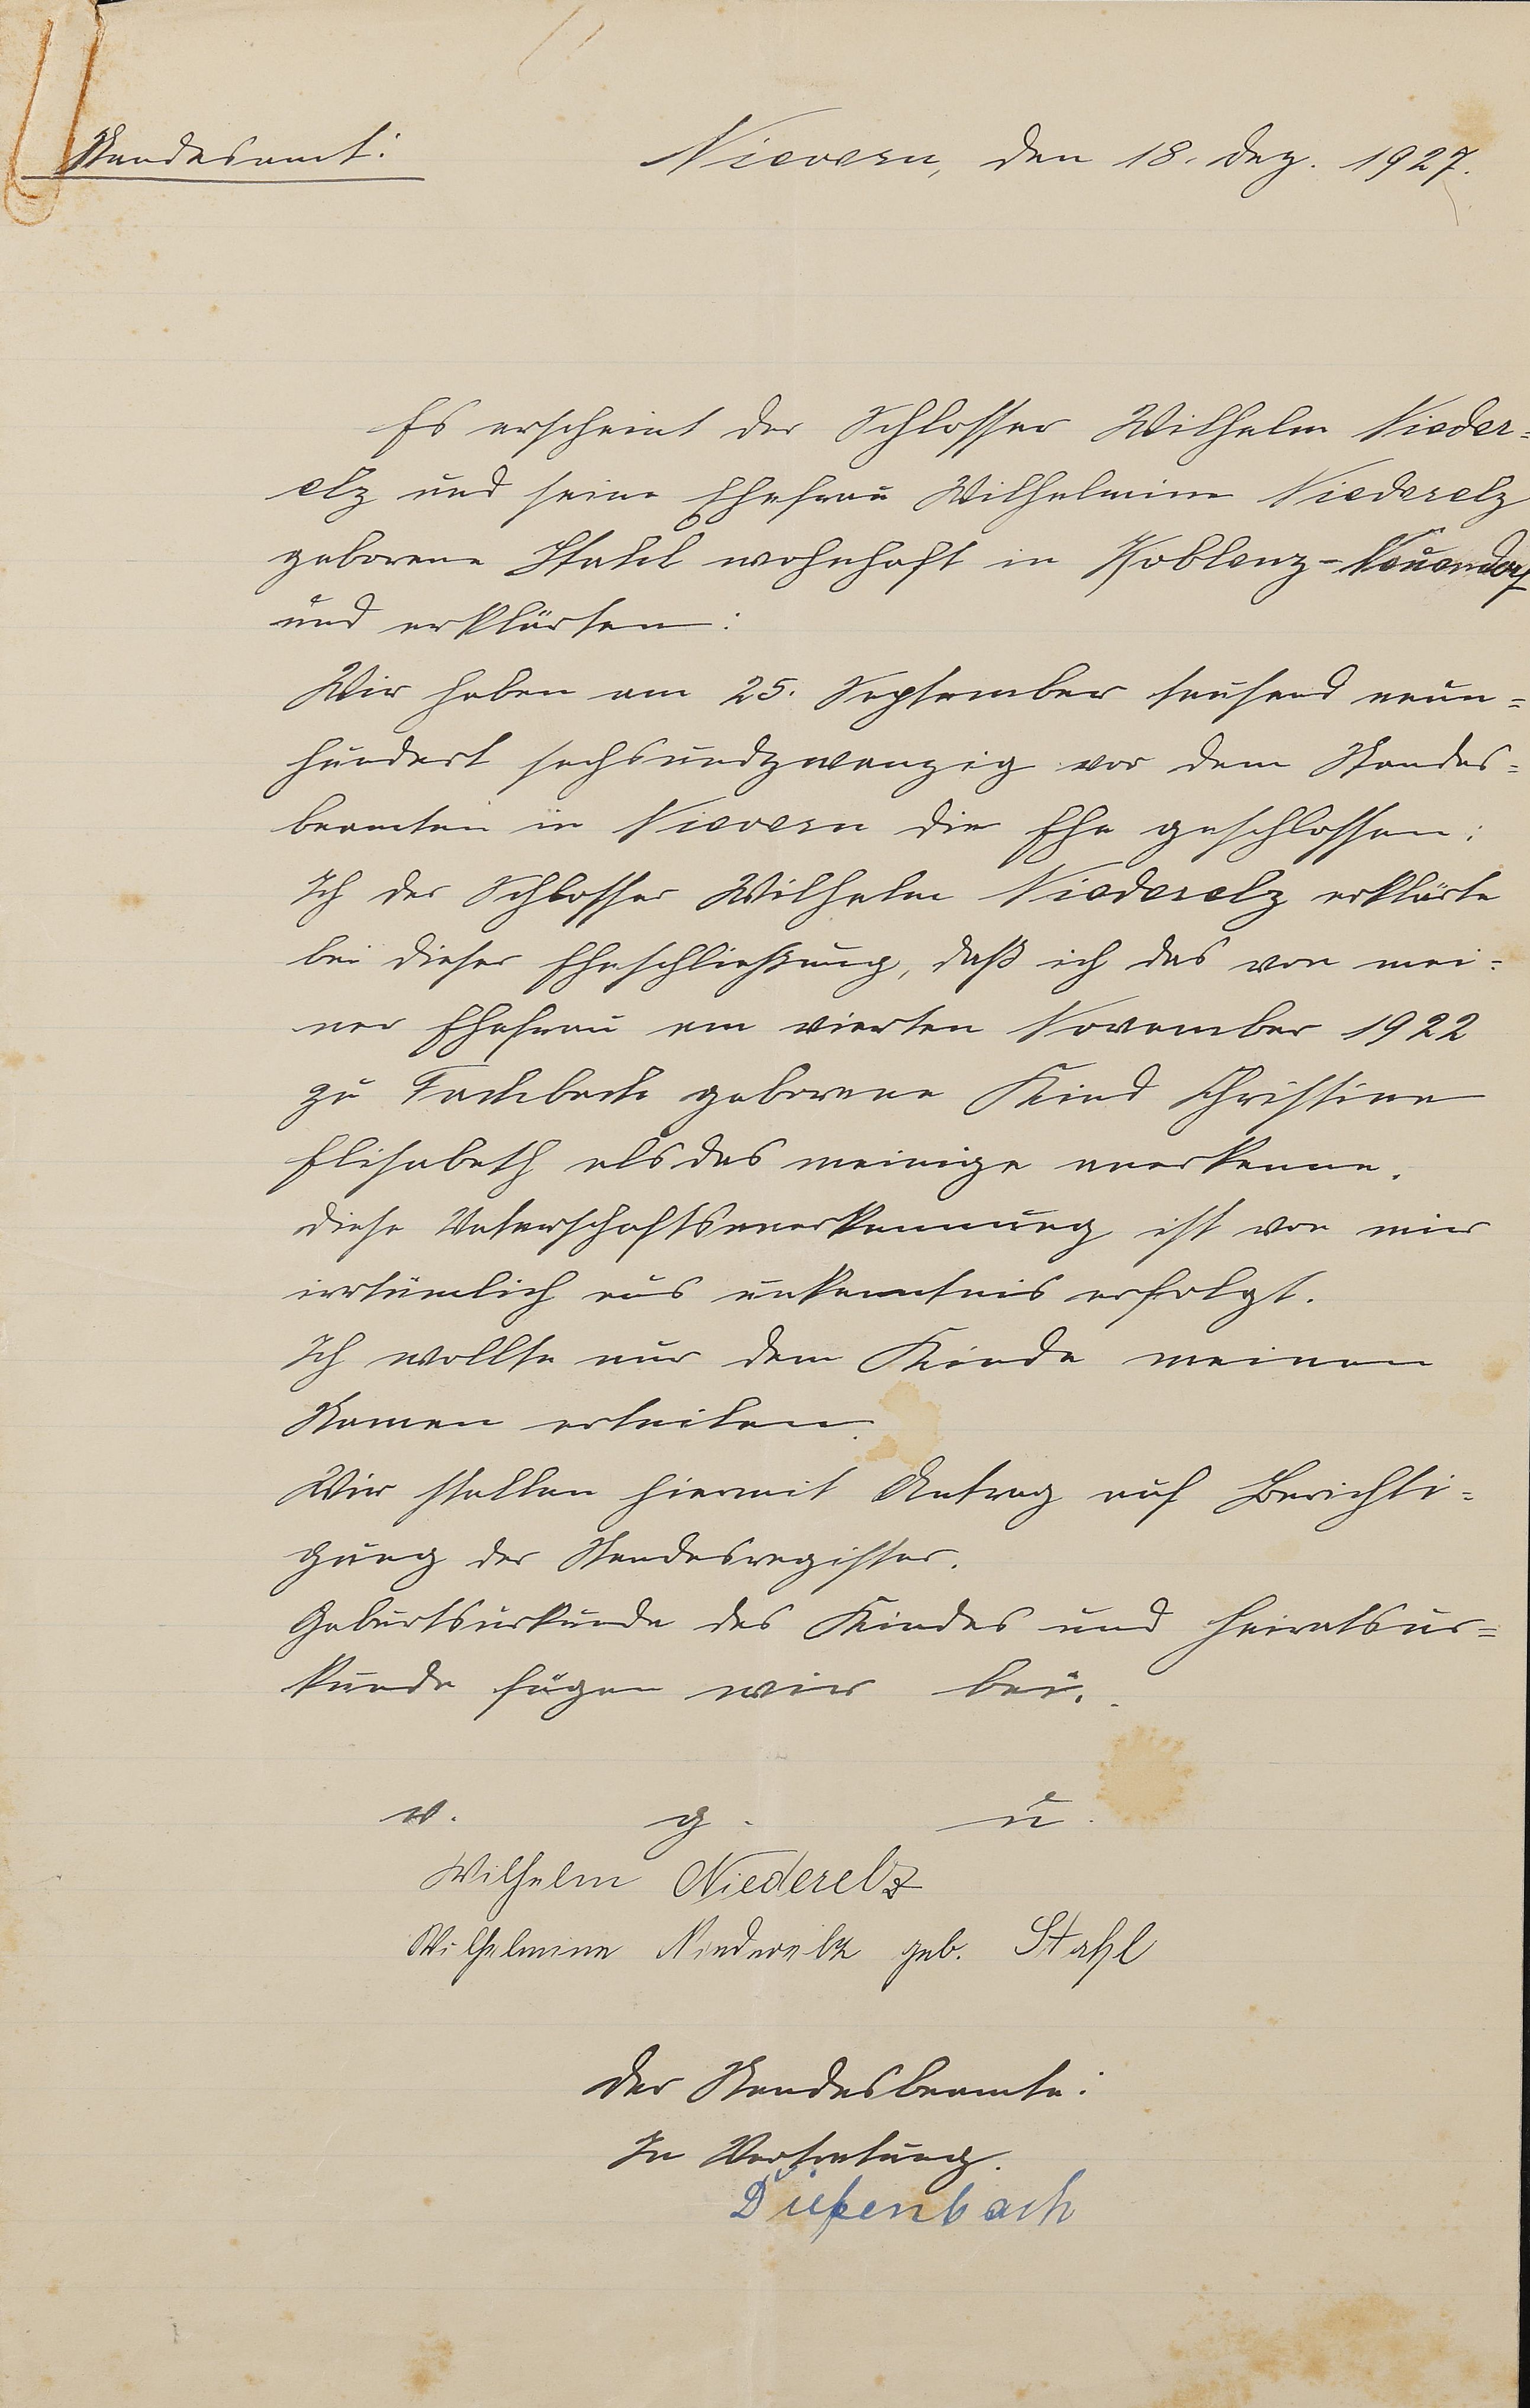 Standesamt: Nievern, den 18. Dez. 1927.
Es erscheint der Schlosser Wilhelm Nieder=
elz und seine Ehefrau Wilhelmine Niederelz
geborene Stahl wohnhaft in Koblenz-Neuendorf
und erklärten:
Wir haben am 25. September tausend neun=
hundert sechsundzwanzig vor dem Standes=
beamten in Nievern die Ehe geschlossen:
Ich der Schlosser Wilhelm Niederelz erklärte
bei dieser Eheschließung, daß ich das von mei=
ner Ehefrau am vierten November 1922
zu Fachbach geborene Kind Christine
Elisabeth als das meinige anerkenne.
Diese Vaterschaftsanerkennung ist von mir
irrtümlich aus unkenntnis erfolgt.
Ich wollte nur dem Kinde meinen
Namen erteilen.
Wir stellen hiermit Antrag auf Berichti=
gung der Standesregister.
Geburtsurkunde des Kindes und Heiratsur=
kunde fügen wir bei.
v. g. u.
Wilhelm Niederelz
Wilhelmine Niederelz geb. Stahl
Der Standesbeamte:
In Vertretung.
Diefenbach